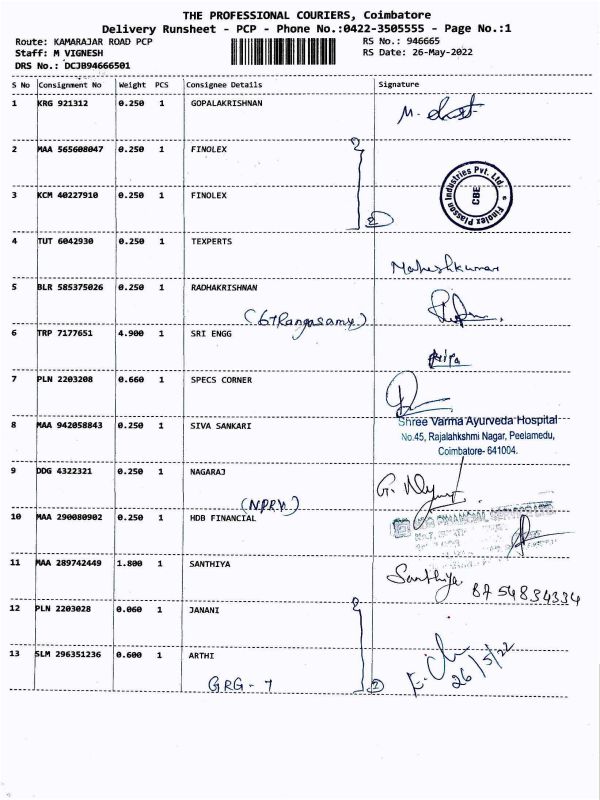 THE PROFESSIONAL COURIERS, Coimbatore
Delivery Runsheet - PCP - Phone No.:0422-3505555 - Page No.:1
Route: KAMARAJAR ROAD PCP RS No.: 946665
Staff: M VIGNESH RS Date: 26-May-2022
DRS No.: DCJB94666501
S No Consignment No Weight PCS Consignee Details Signature
1 KRG 921312 0.250 1 GOPALAKRISHNAN
2 MAA 565608047 0.250 1 FINOLEX
3 KCM 40227910 0.250 1 FINOLEX
Finolex Plasson Industries Pvt. Ltd.
CBE
2
4 TUT 6042930 0.250 1 TEXPERTS
Maheshkumar
5 BLR 585375026 0.250 1 RADHAKRISHNAN
(G Rangasamy)
6 TRP 7177651 4.900 1 SRI ENGG
7 PLN 2203208 0.660 1 SPECS CORNER
8 MAA 942058843 0.250 1 SIVA SANKARI
Shree Varma Ayurveda Hospital
No.45, Rajalahkshmi Nagar, Peelamedu,
Coimbatore- 641004.
9 DDG 4322321 0.250 1 NAGARAJ
10 MAA 290080902 0.250 1 HDB FINANCIAL
11 MAA 289742449 1.800 1 SANTHIYA
Santhiya 8754834334
12 PLN 2203028 0.060 1 JANANI
13 SLM 296351236 0.600 1 ARTHI
26/5/22
GRG - 7
2